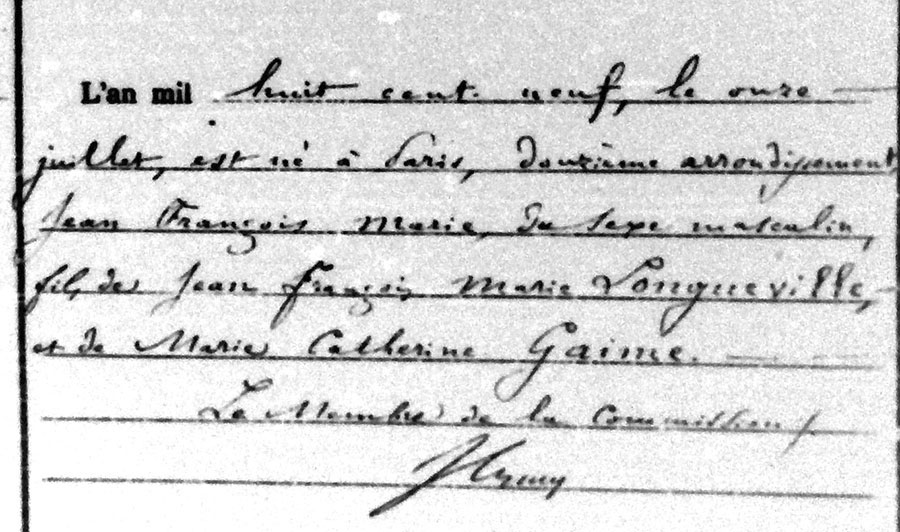 L'an mil huit cent neuf, le onze
juillet, est né à Paris, douzième arrondissement
Jean François Marie, du sexe masculin,
fils de Jean François Marie Longueville,
et de Marie Catherine Gaime.
Le Membre de la Commission,